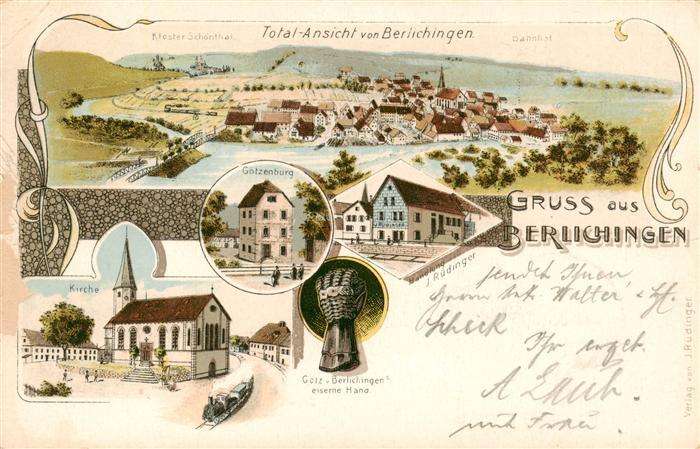 Total-Ansicht von Berlichingen.
Kloster Schönthal.
Bahnhof.
Götzenburg
J. RÜDINGER
Handlung
J. Rüdinger
GRUSS aus
BERLICHINGEN
Kirche
Götz v. Berlichingen's
eiserne Hand.
sendet Ihnen
Walter
Scheck
Ihr ergeb.
A Laub.
und Frau.
Verlag von J. Rüdinger